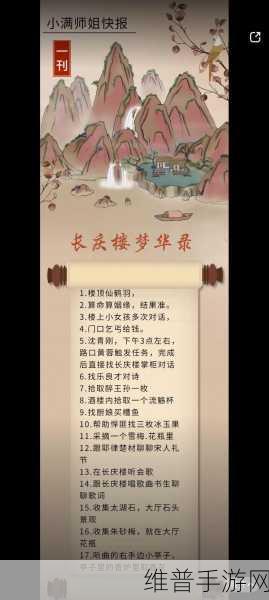 小满师姐快报
一刊
长庆楼梦华录
1.楼顶仙鹤羽，
2.算命算姻缘，结果准。
3.楼上小女孩多次对话，
4.门口乞丐给钱。
5.沈青刚，下午3点左右，
路口黄蓉触发任务，完成
后直接找长庆楼掌柜对话
6.找乐良才对诗
7.拾取醉王孙一枚
8.酒楼内拾取一个流觞杯
9.找厨娘买糟鱼
10.帮助悍匪找三枚冰玉果
11.采摘一个雪梅.花瓶里
12.跟耶律楚材聊聊宋人礼
节
13.在长庆楼听会歌
14.跟长庆楼唱歌曲书生聊
聊歌词
15.收集太湖石，大厅石头
景观
16.收集朱砂梅，就在大厅
花瓶
17.听曲的右手边小亭子，
维普手游网